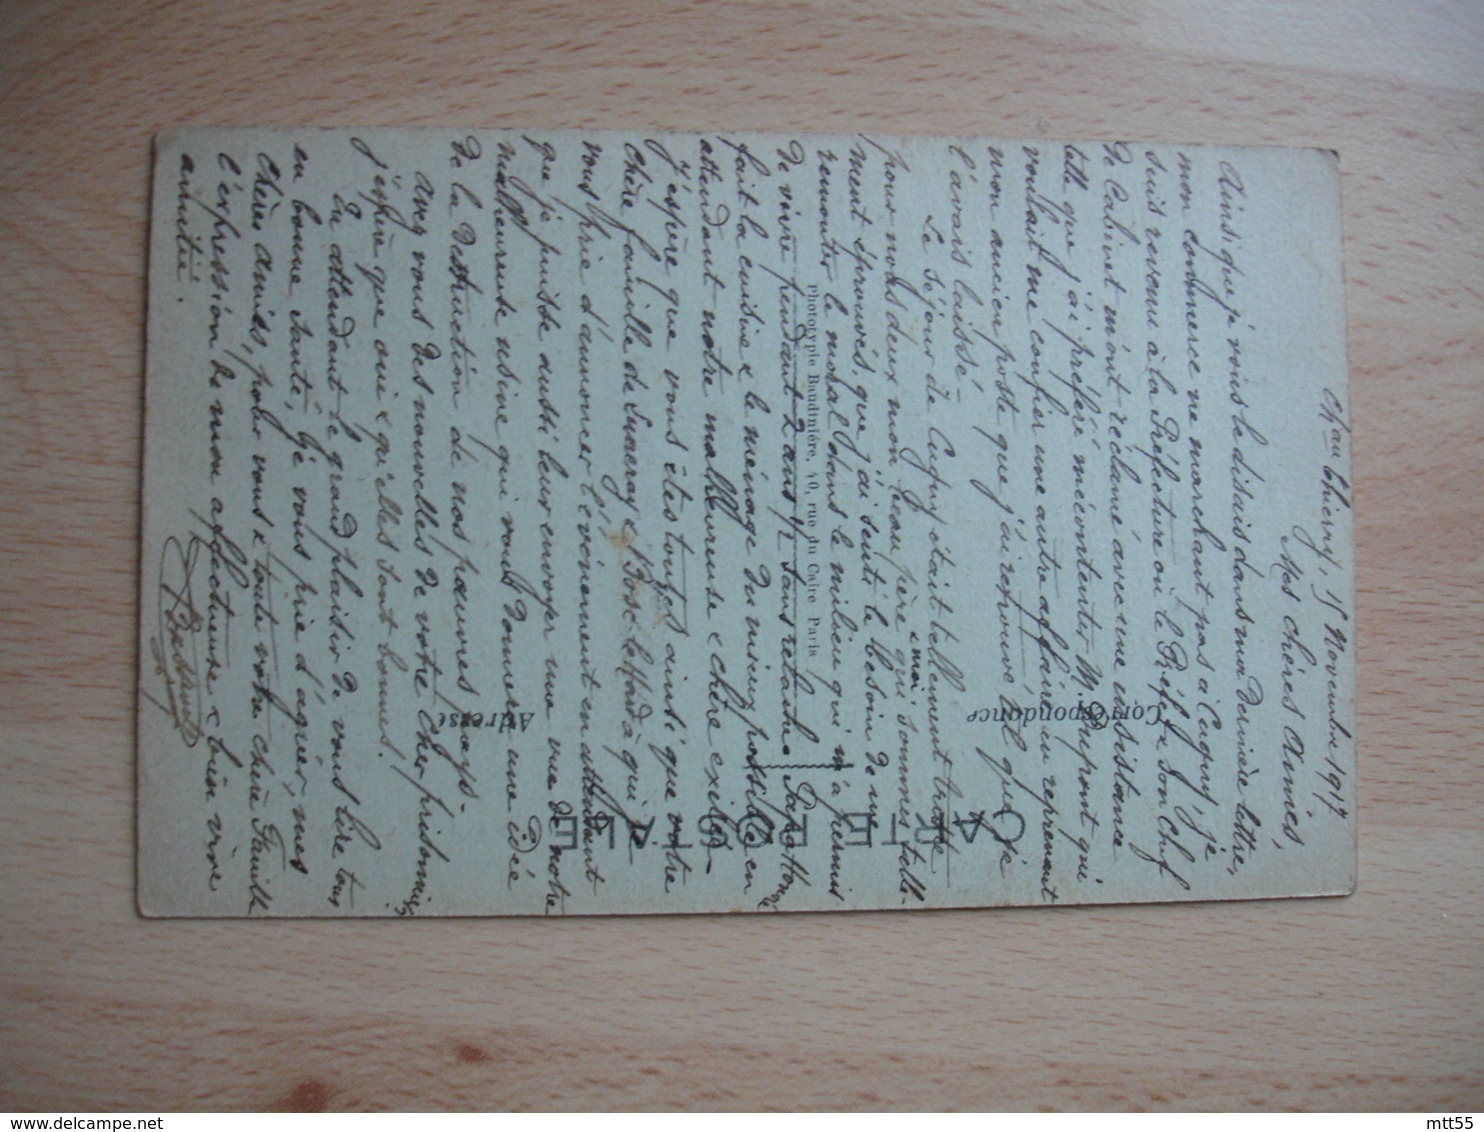 Chau Thierry, 15 Novembre 1917
Mes chères Amies,
Ainsi que je vous le disais dans ma dernière lettre,
mon commerce ne marchant pas à Cugny, je
suis revenu à la Préfecture où le Préfet & son Chef
de Cabinet m'ont réclamé avec une insistance
telle que j'ai préféré mécontenter M. Dupront qui
voulait me confier une autre affaire en reprenant
mon ancien poste que j'ai retrouvé tel que je
l'avais laissé –
Le séjour de Cugny était tellement triste
pour nous deux mon beau père & moi qui sommes telle-
ment éprouvés, que j'ai senti le besoin de me
remonter le moral dans le milieu qui m'a permis
de vivre pendant 2 ans 1/2 sans retentir. Papa
fait la cuisine & le ménage du mieux possible en
attendant notre malheureuse & chère exilée –
J'espère que vous êtes toutes ainsi que votre
chère famille de & à qui je
vous prie d'annoncer l'événement en attendant
que je puisse aussi leur envoyer une vue de notre
malheureuse usine qui vous donnera une idée
de la destruction de nos pauvres pays –
Avez vous des nouvelles de votre cher prisonnier,
j'espère que oui & qu'elles sont bonnes.
En attendant le grand plaisir de vous lire tous
en bonne santé, je vous prie d'agréer, mes
chères amies, pour vous & toute votre chère famille
l'expression de mon affectueuse & bien vive
amitié.
CARTE POSTALE
Correspondance
Adresse
Phototypie Baudinière, 40, rue du Caire Paris
mtt55